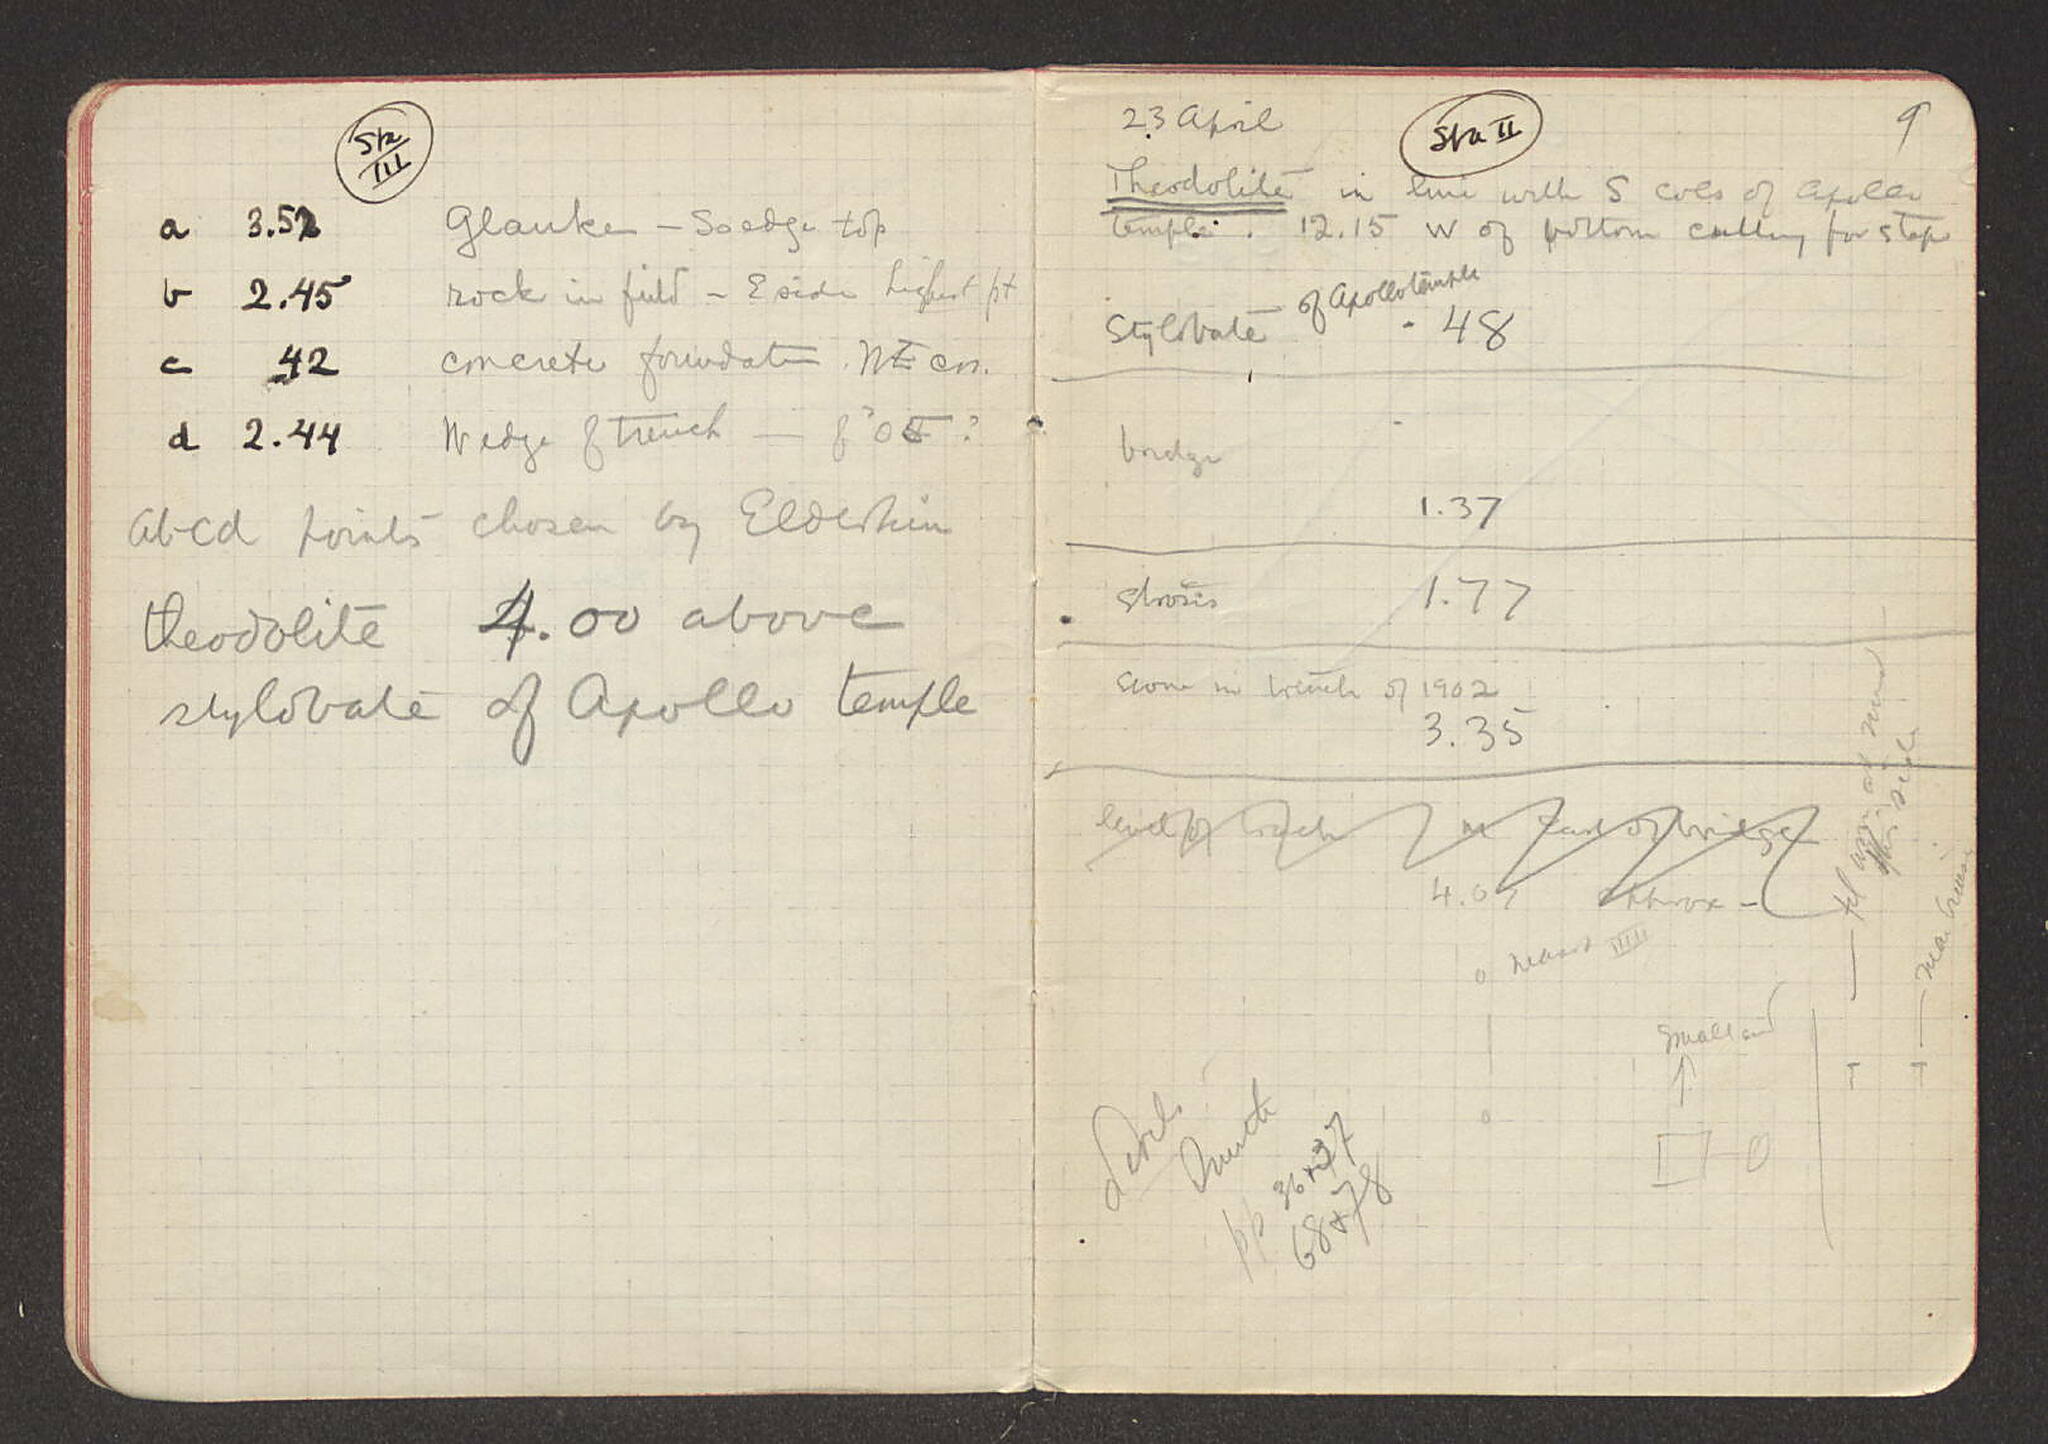 Sta III
a 3.52 Glauke - So edge top
b 2.45 rock in field - E side highest pt
c .42 concrete foundation NE cor.
d 2.44 W edge of trench —
abcd points chosen by Elderkin
theodolite 4.00 above
stylobate of Apollo temple
23 April Sta II 9
Theodolite in line with S cols of Apollo
temple. 12.15 W of bottom cutting for step
Stylobate of Apollo temple .48
bridge
1.37
strosis 1.77
stone in trench of 1902
3.35
level of trench in east of bridge
4.07 approx -
Small
Levels
pp 36+37
68+78